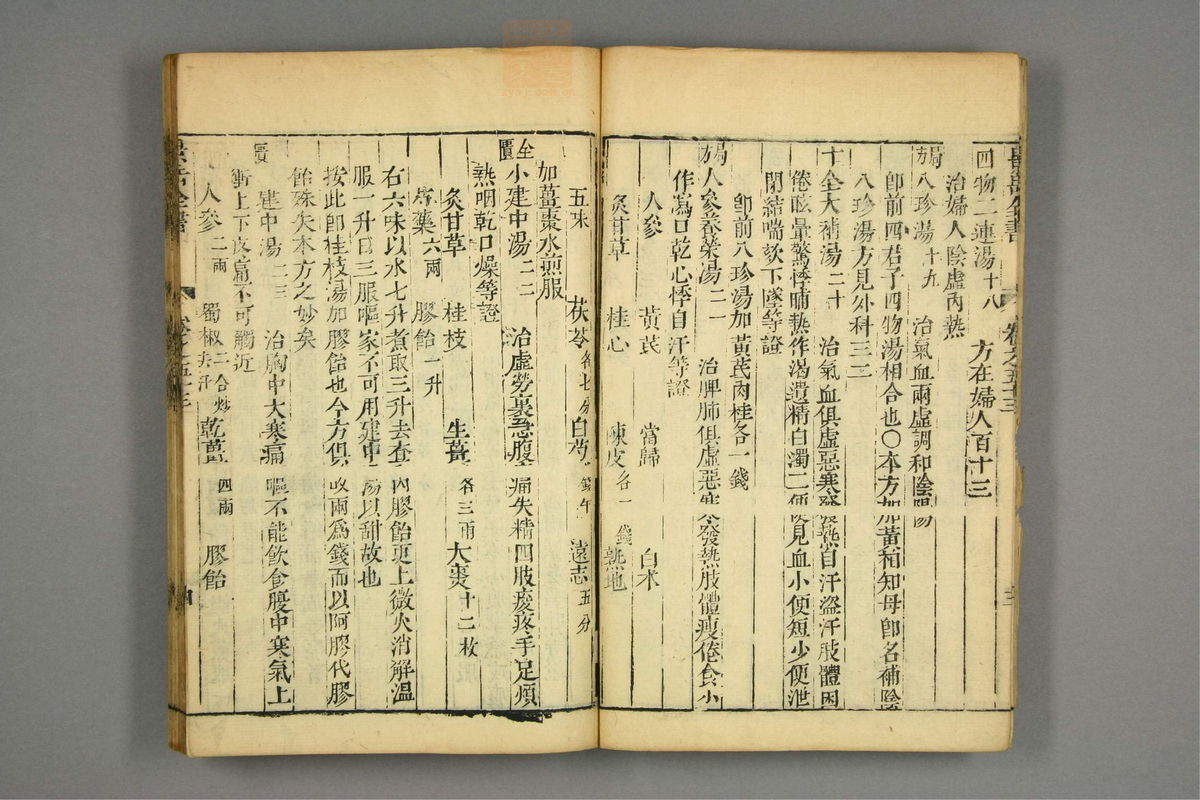 四物二連湯十八　方在婦人百十三
治婦人陰虛內熱
局方八珍湯十九　治氣血兩虛調和陰陽
卽前四君子四物湯相合也〇本方加黃栢知母卽名補陰
八珍湯方見外科三三
十全大補湯二十　治氣血俱虛惡寒發熱自汗盜汗肢體困
倦眩暈驚悸晡熱作渴遺精白濁二便見血小便短少便泄
閉結喘欬下墜等證
卽前八珍湯加黃芪肉桂各一錢
局方人參養榮湯二一　治脾肺俱虛惡寒發熱肢體瘦倦食少
作瀉口乾心悸自汗等證
人參　黃芪　當歸　白术
炙甘草　桂心　陳皮各一錢　熟地
五味　茯苓各七分　白芍　錢午　遠志五分
加薑棗水煎服
金匱小建中湯二二　治虛勞裏急腹痛失精四肢痠疼手足煩
熱咽乾口燥等證
炙甘草　桂枝　生薑各三兩　大棗十二枚
芍藥六兩　膠飴一升
右六味以水七升煮取三升去查內膠飴更上微火消解溫
服一升日三服嘔家不可用建中湯以甜故也
按此卽桂枝湯加膠飴也今方俱改兩爲錢而以阿膠代膠
飴殊失本方之妙矣
匱　建中湯二三　治胸中大寒痛嘔不能飲食腹中寒氣上
衝上下痛不可觸近
人參二兩　蜀椒二合炒　乾薑四兩　膠飴
景岳全書　卷之五十三